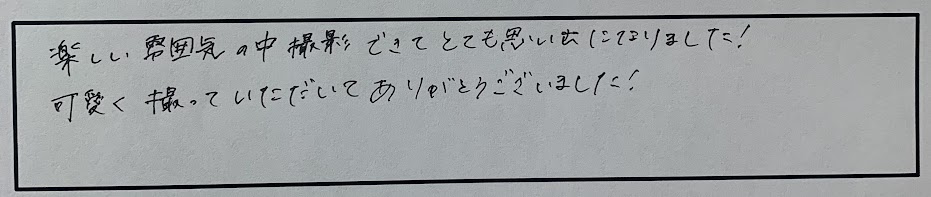 楽しい雰囲気の中撮影できてとても思い出になりました！
可愛く撮っていただいてありがとうございました！